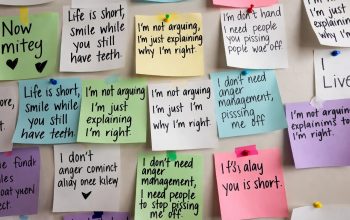 Now
mitey
Life is short,
smile while
you still
have teeth.
I'm not arguing,
I'm just explaining
why I'm right.
I'm don't hand
I need people
you pissing
pople wae off.
Life is short,
smile while
you still
have teeth.
I'm not arguing
I'm just
explaining
I'm right.
I'm not arguing
I'm just
why I'm right.
I don't need
anger
management,
pisssing
me off
I Live
I'm not arguing
explainims to
I'm right.
I don't
anger
aliay one klew
I don't need
anger
management,
I need people
to stop pissing
me off.
I's alay
you is short.